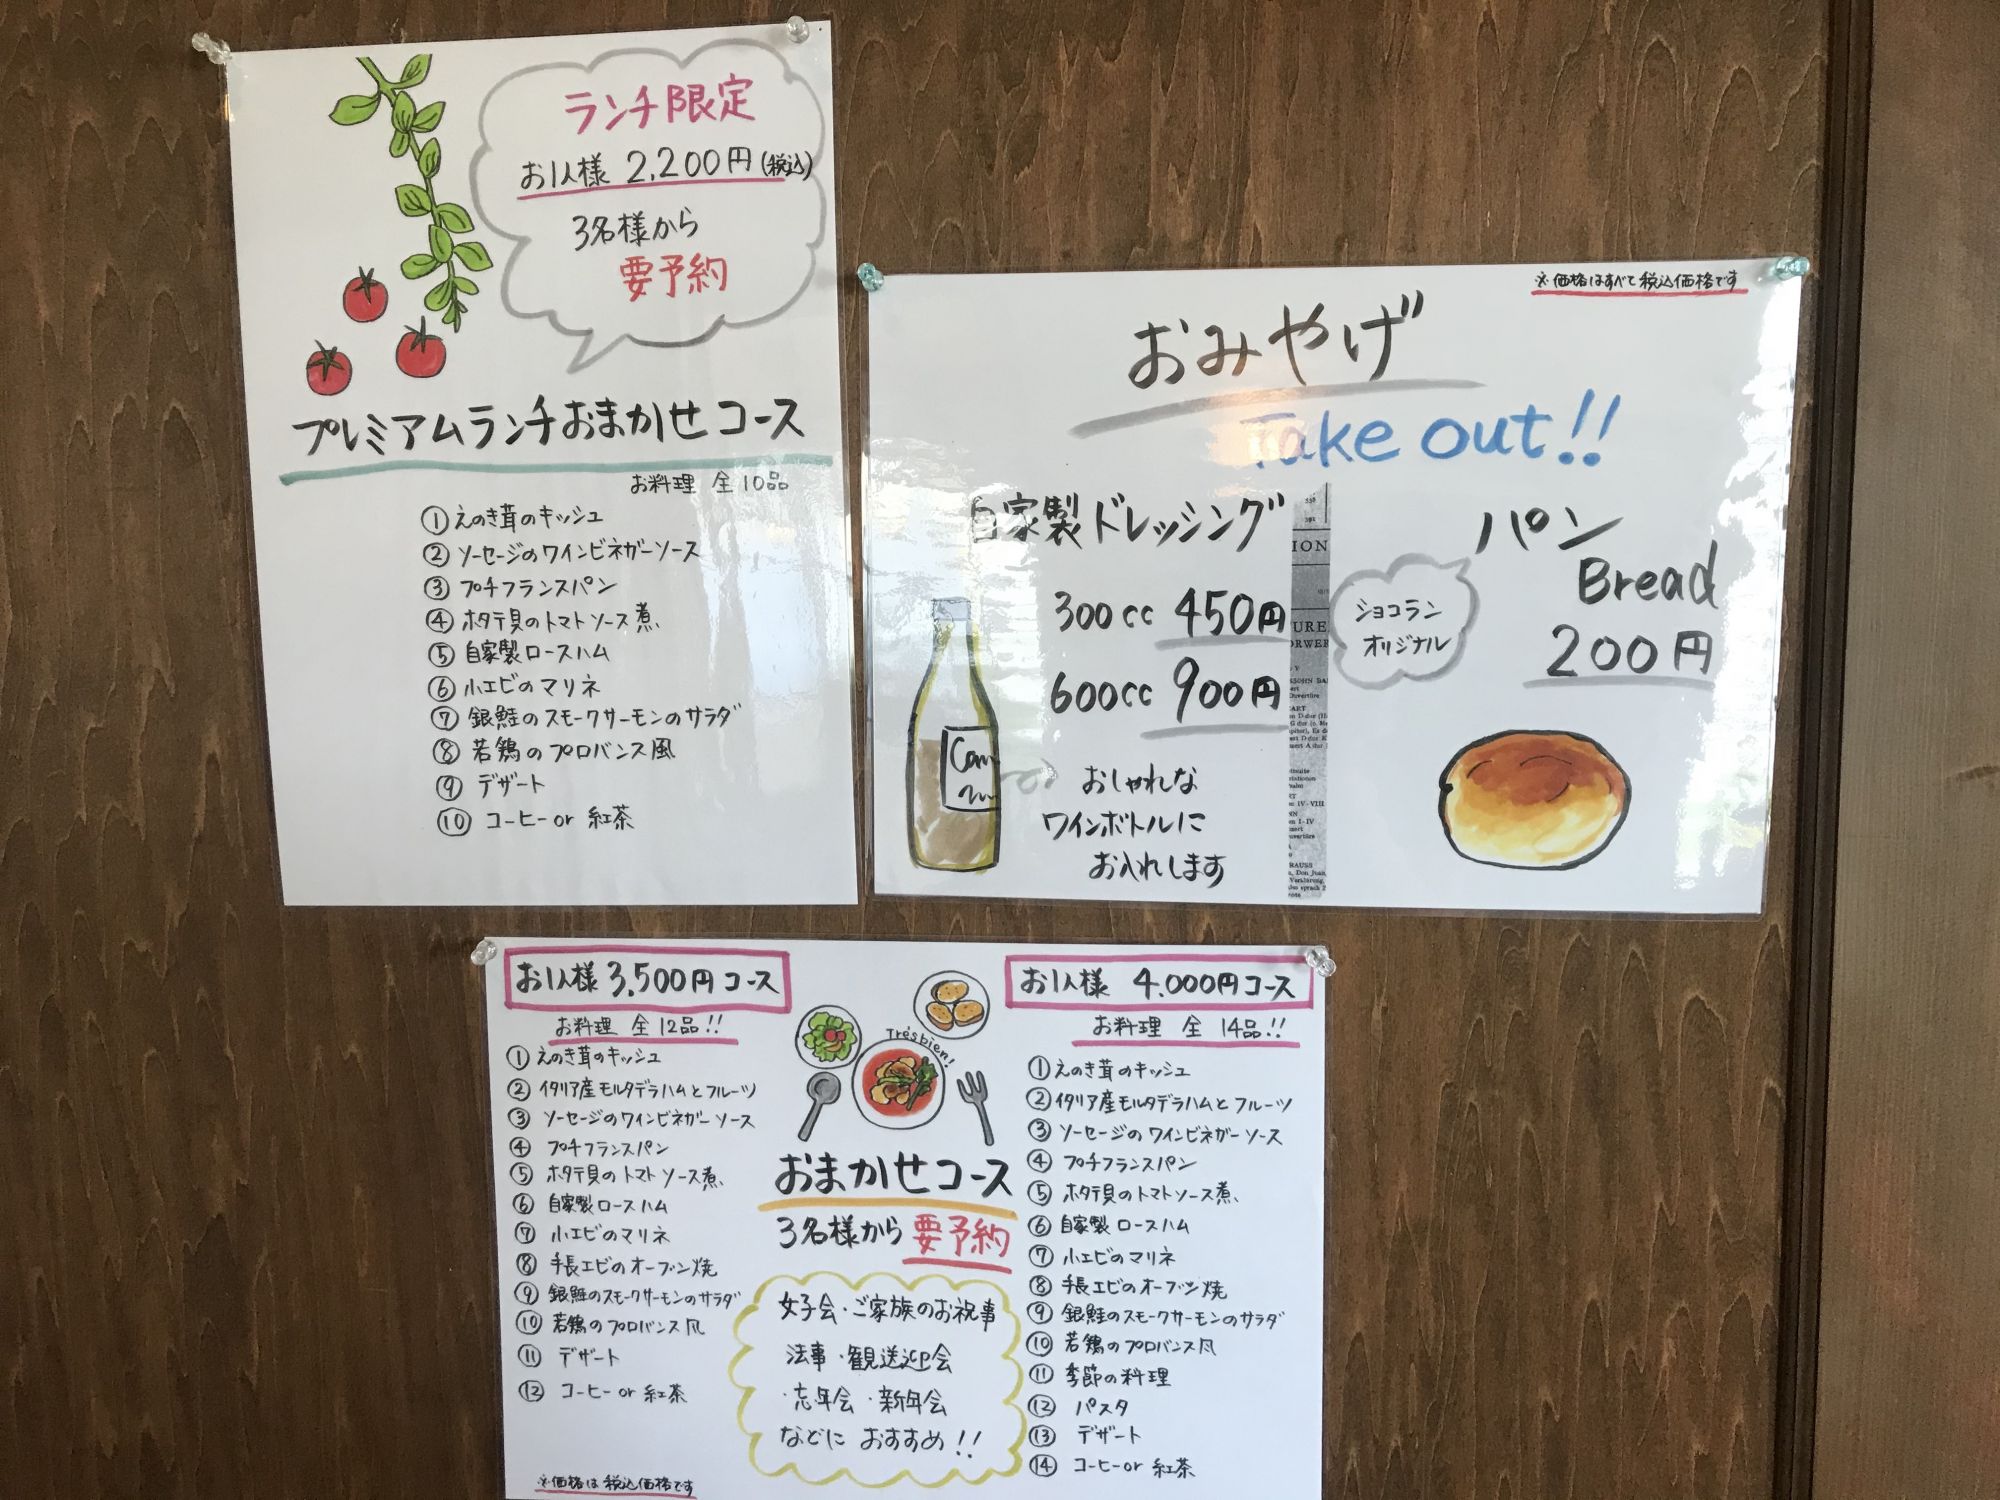 ランチ限定
お1人様 2,200円(税込)
3名様から
要予約
プレミアムランチおまかせコース
お料理 全10品
① えのき茸のキッシュ
② ソーセージのワインビネガーソース
③ プチフランスパン
④ ホタテ貝のトマトソース煮、
⑤ 自家製ロースハム
⑥ 小エビのマリネ
⑦ 銀鮭のスモークサーモンのサラダ
⑧ 若鶏のプロバンス風
⑨ デザート
⑩ コーヒーor 紅茶
※価格はすべて税込価格です
おみやげ
Take out!!
自家製ドレッシング
300cc 450円
600cc 900円
おしゃれな
ワインボトルに
お入れします
ショコラン
オリジナル
パン
Bread
200円
ION
URE
ORWER
お1人様 3,500円コース
お料理 全12品!!
① えのき茸のキッシュ
② イタリア産モルタデラハムとフルーツ
③ ソーセージのワインビネガーソース
④ プチフランスパン
⑤ ホタテ貝のトマトソース煮、
⑥ 自家製ロースハム
⑦ 小エビのマリネ
⑧ 手長エビのオーブン焼
⑨ 銀鮭のスモークサーモンのサラダ
⑩ 若鶏のプロバンス風
⑪ デザート
⑫ コーヒーor 紅茶
※価格は税込価格です
Trèsbien!
おまかせコース
3名様から要予約
女子会・ご家族のお祝事
法事・観送迎会
・忘年会・新年会
などに おすすめ!!
お1人様 4,000円コース
お料理 全 14品!!
① えのき茸のキッシュ
② イタリア産モルタデラハムとフルーツ
③ ソーセージのワインビネガーソース
④ プチフランスパン
⑤ ホタテ貝のトマトソース煮、
⑥ 自家製ロースハム
⑦ 小エビのマリネ
⑧ 手長エビのオーブン焼
⑨ 銀鮭のスモークサーモンのサラダ
⑩ 若鶏のプロバンス風
⑪ 季節の料理
⑫ パスタ
⑬ デザート
⑭ コーヒーor 紅茶